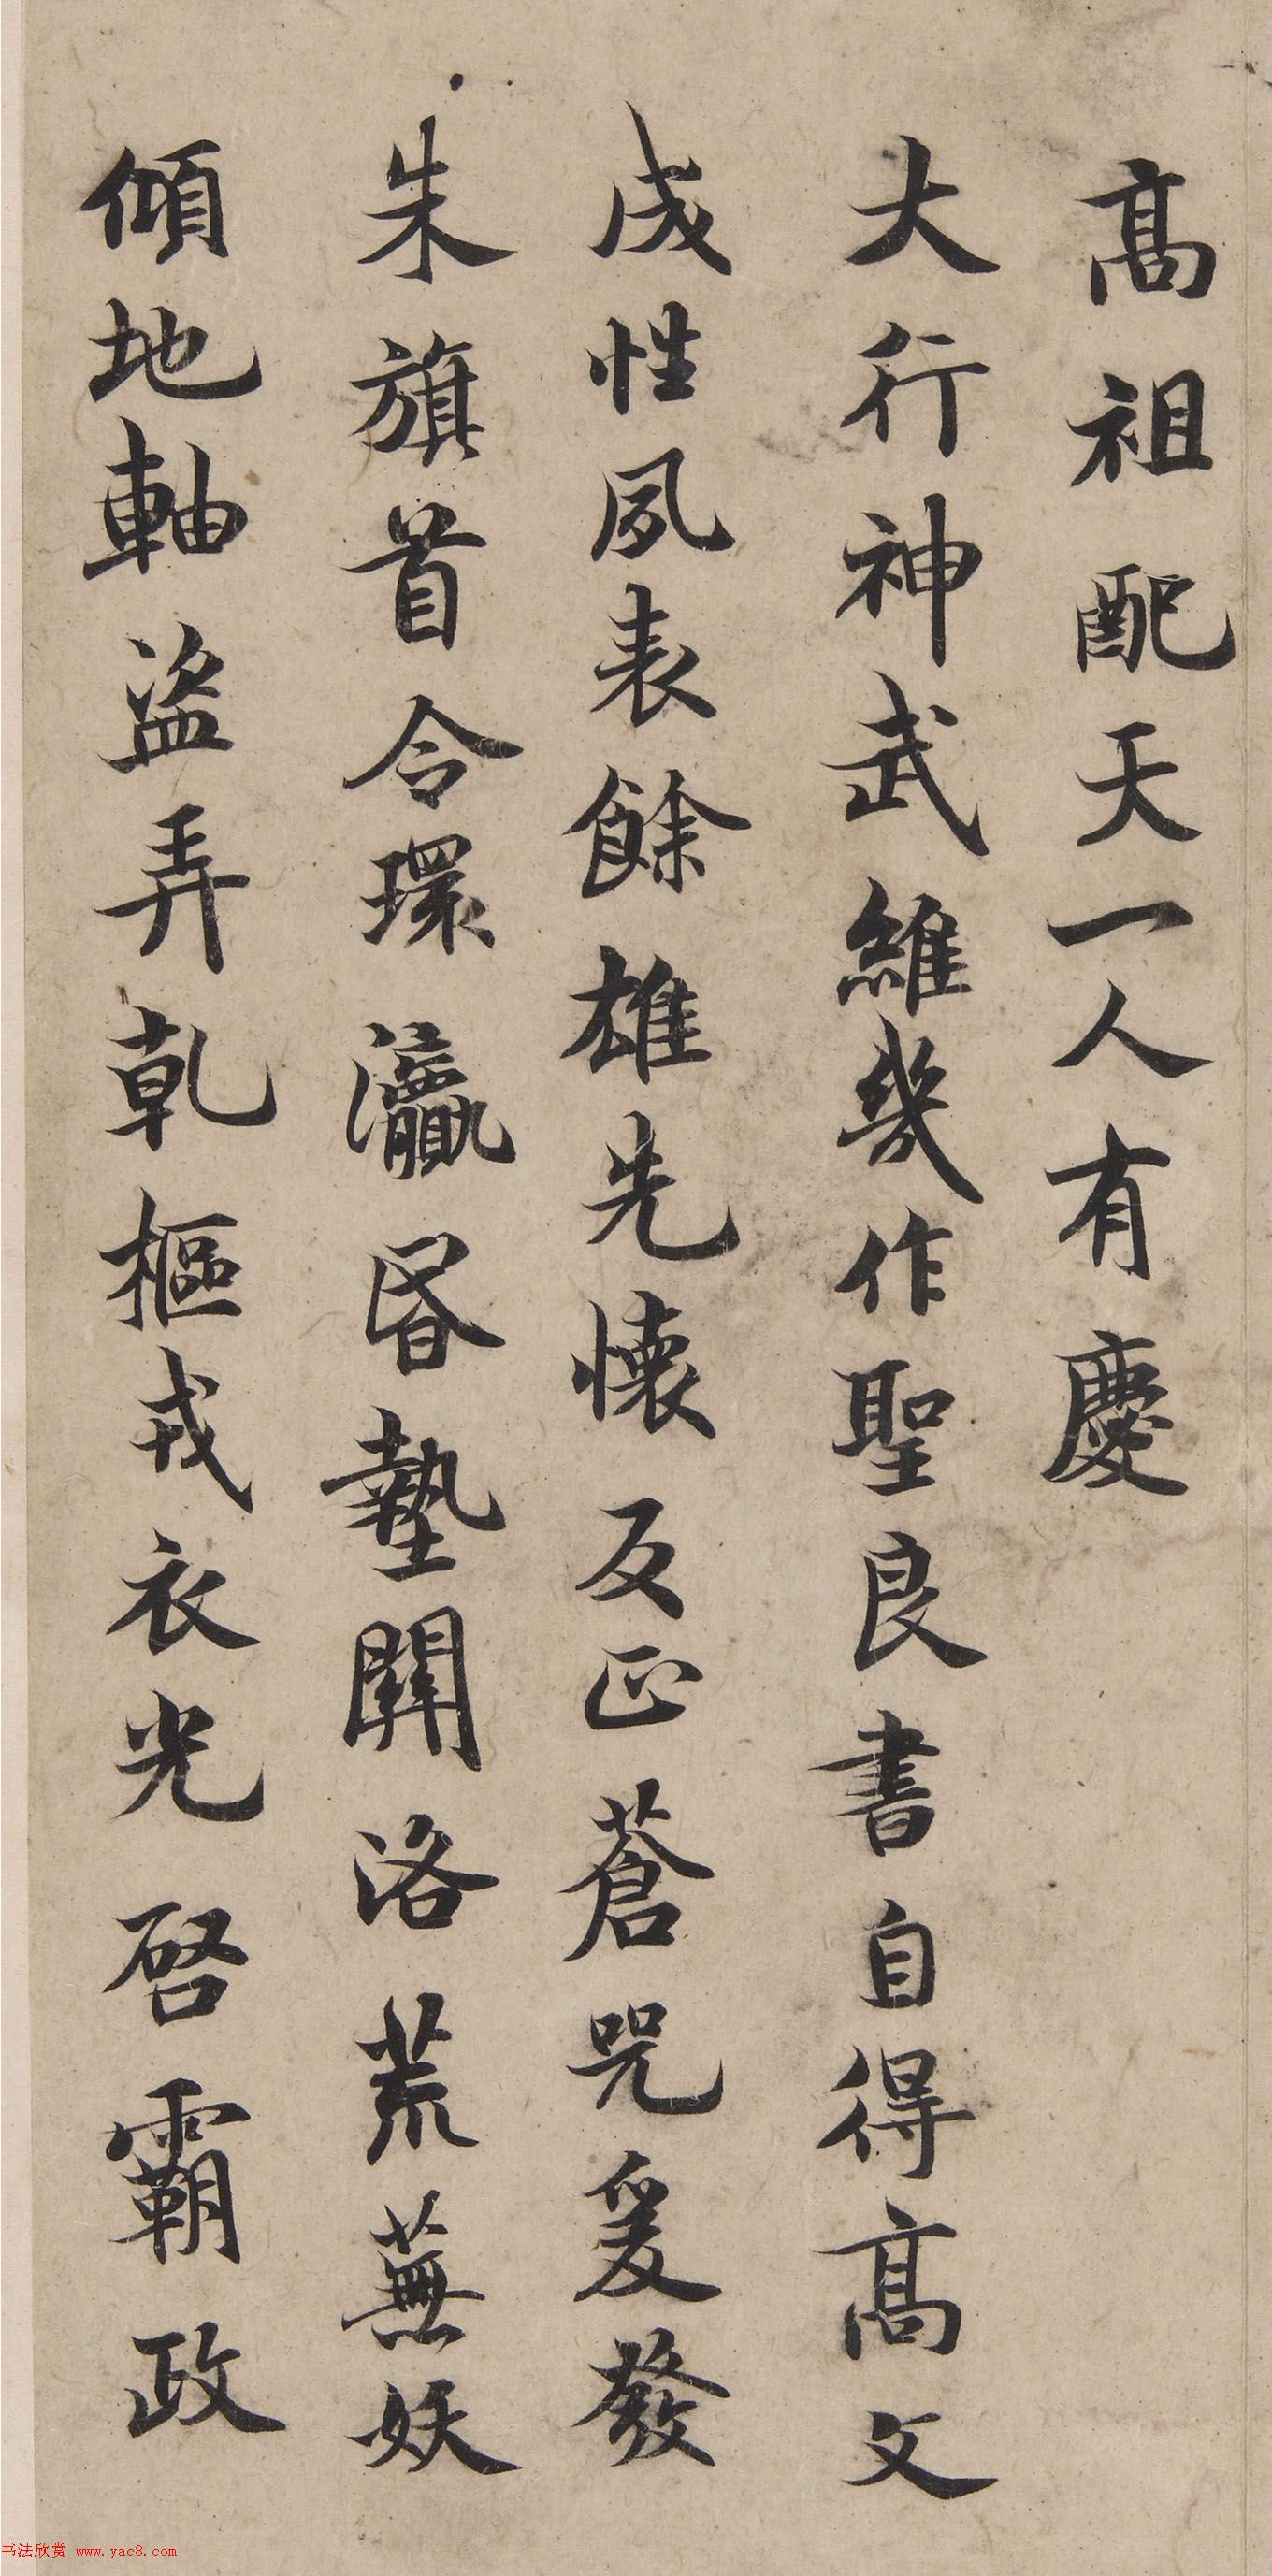 高祖配天一人有慶
大行神武維幾作聖良書自得高文
成性夙表餘雄先懷反正蒼咒爰發
朱旗首令環瀛昬墊關洛荒蕪妖
傾地軸盜弄乹樞戎衣光啓霸政
书法欣赏 www.yac8.com